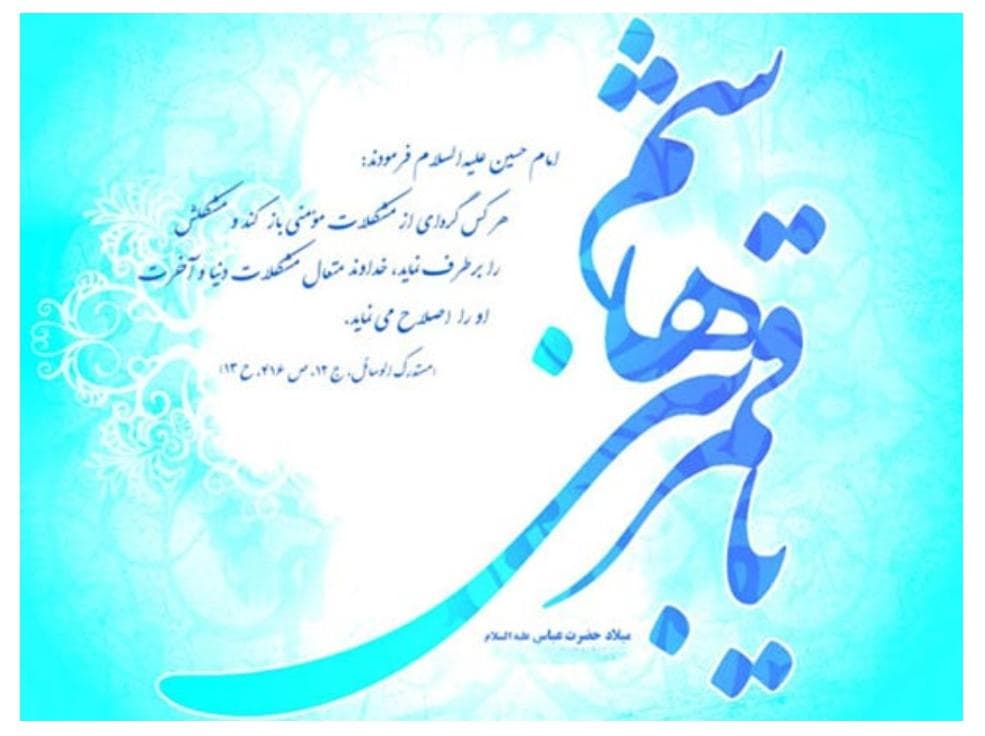 یا قمر بنی هاشم
امام حسین علیه السلام فرمودند:
هر کس گره‌ای از مشکلات مؤمنی باز کند و مشکلش
را برطرف نماید، خداوند متعال مشکلات دنیا و آخرت
او را اصلاح می نماید.
(مستدرک الوسائل، ج ۱۲، ص ۴۱۶، ح ۱۳)
میلاد حضرت عباس علیه السلام